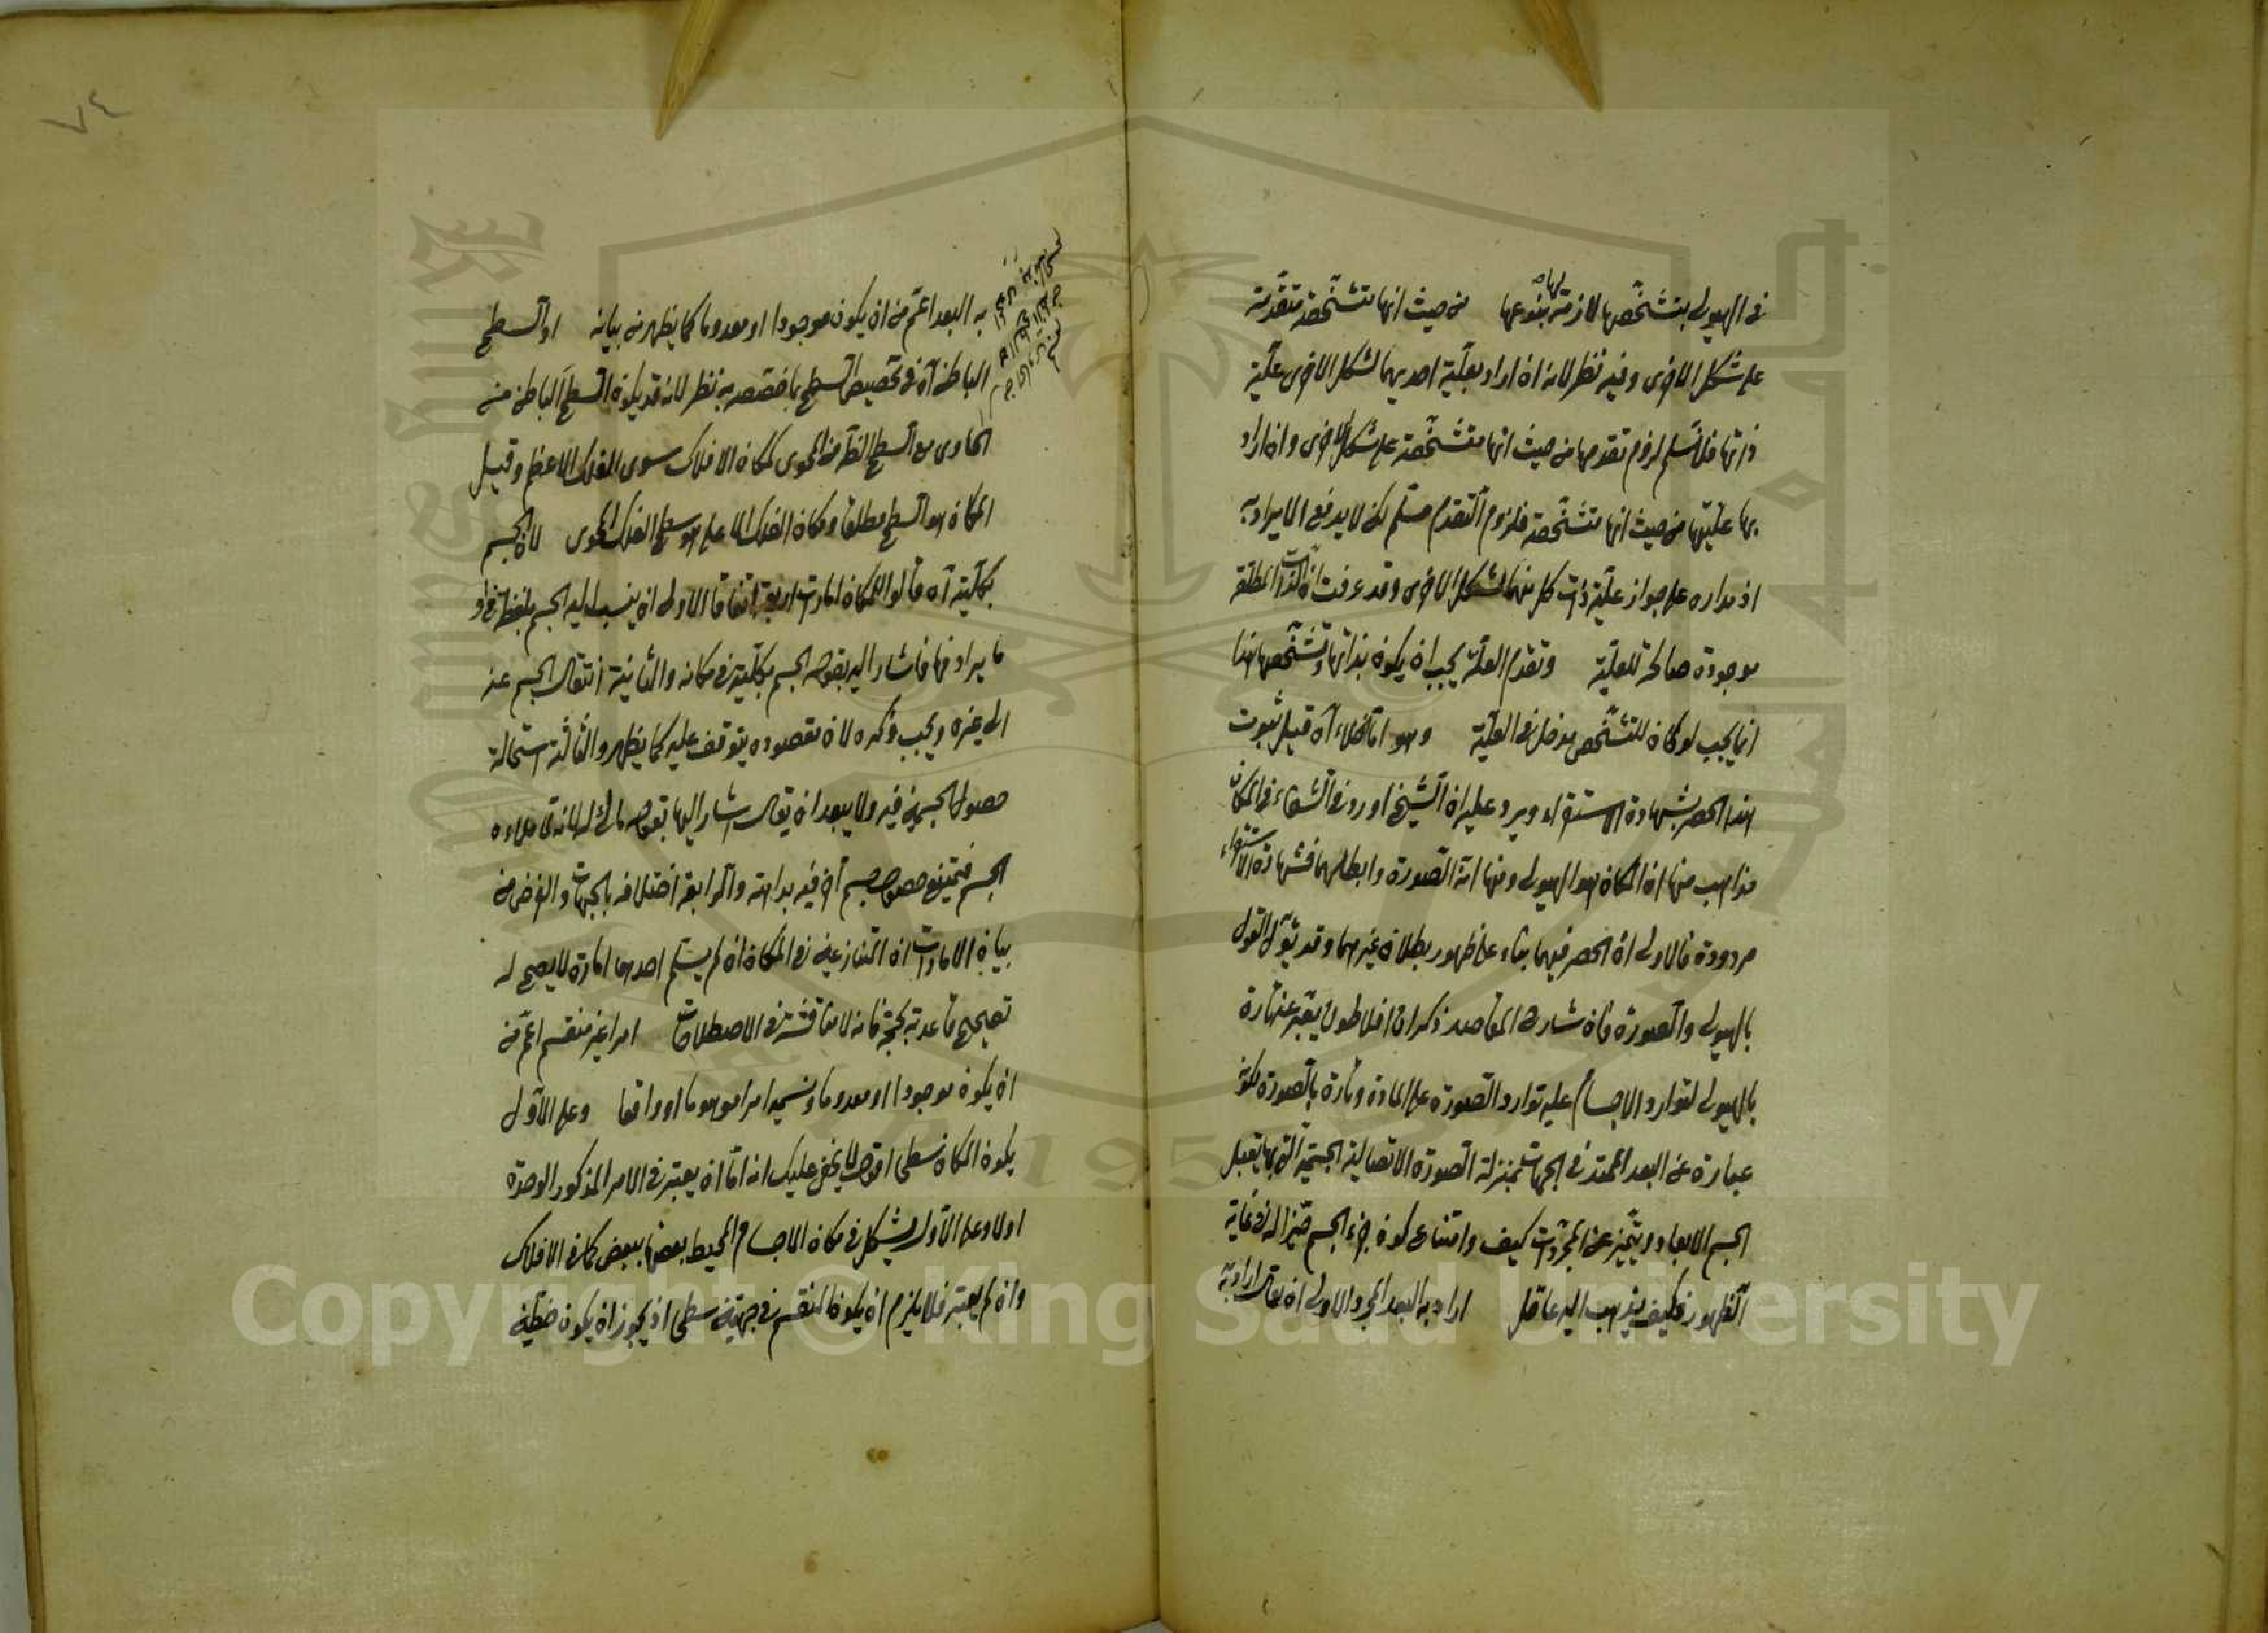 في الهيولى بتشخصها لازمة لها بنوعها من حيث انها متشخصة متقدمة
على شكل الاخرى وفيه نظر لانه ان اراد بعلية احديهما لشكل الاخرى علية
ذاتها فلا نسلم لزوم تقدمها من حيث انها متشخصة على شكل الاخرى وان اراد
بها عليتها من حيث انها متشخصة فلزوم التقدم مسلم لكن لا يدفع الايراد به
اذ مداره على جواز علية ذات كل منهما لشكل الاخرى وقد عرفت ان الذات المطلقة
موجودة صالحة للعلية وتقدم العلة يجب ان يكون بذاتها وتشخصها هذا
انما يجب لو كان للتشخص مدخل في العلية وهو اما الخلاء آه قيل ثبوت
هذا الحصر بشهادة الاستقراء ويرد عليه ان الشيخ اورد في الشفاء في المكان
مذاهب منها ان المكان هو الهيولى ومنها انه الصورة وابطلهما فشهادة الاستقراء
مردودة فالاولى ان الحصر فيهما بناء على ظهور بطلان غيرهما وقد يؤل القول
بالهيولى والصورة فان شارح المقاصد ذكر ان افلاطون يعبر عنه تارة
بالهيولى لتوارد الاجسام عليه توارد الصورة على المادة وتارة بالصورة لكونه
عبارة عن البعد الممتد في الجهات بمنزلة الصورة الاتصالية الجسمية التي بها يقبل
الجسم الابعاد ويتميز عن المجردات كيف وامتناع كون جزء الجسم حيزا له في غاية
الظهور فكيف يذهب اليه عاقل اراد به البعد المجرد الاولى ان يقال اراد به
٧٤
به البعد اعم من ان يكون موجودا او معدوما كما يظهر من بيانه او السطح
الباطن آه في تخصيص السطح بما خصصه به نظر لانه قد يكون السطح الباطن من
الحاوى مع السطح الظاهر من المحوى كمكان الافلاك سوى الفلك الاعظم وقيل
المكان هو السطح مطلقا ومكان الفلك الاعلى هو سطح الفلك المحوى لان الجسم
بكليته آه قالوا للمكان امارات اربعة اتفاقا الاولى ان ينسب اليه الجسم بلفظة في او
ما يرادفها فاشار اليه بقوله الجسم بكليته في مكانه والثانية انتقال الجسم عنه
الى غيره ويجب ذكره لان مقصوده يتوقف عليه كما يظهر والثالثة استحالة
حصول الجسمين فيه ولا يبعد ان يقال اشار اليها بقوله مالئ له لانه
الجسم فيمتنع حصول جسم آخر فيه بداهة والرابعة اختلافه بالجهات والغرض من
بيان الامارات ان المتنازعين في المكان ان لم يسلم احدهما امارة لا يصح له
تصحيح قاعدته بحجة فانه لا مناقشة في الاصطلاحات امرا غير منقسم اعم من
ان يكون موجودا او معدوما امرا موهوما او واقعا وعلى الاول
يكون المكان سطحى اقول لا يخفى عليك انه اما ان يعتبر في الامر المذكور الوحدة
اولا وعلى الاول يشكل في مكان الاجسام المحيط بعضها ببعض كما في الافلاك
وان لم يعتبر فلا يلزم ان يكون المنقسم في جهتين سطحى اذ يجوز ان يكون خطين
Copyright © King Saud University